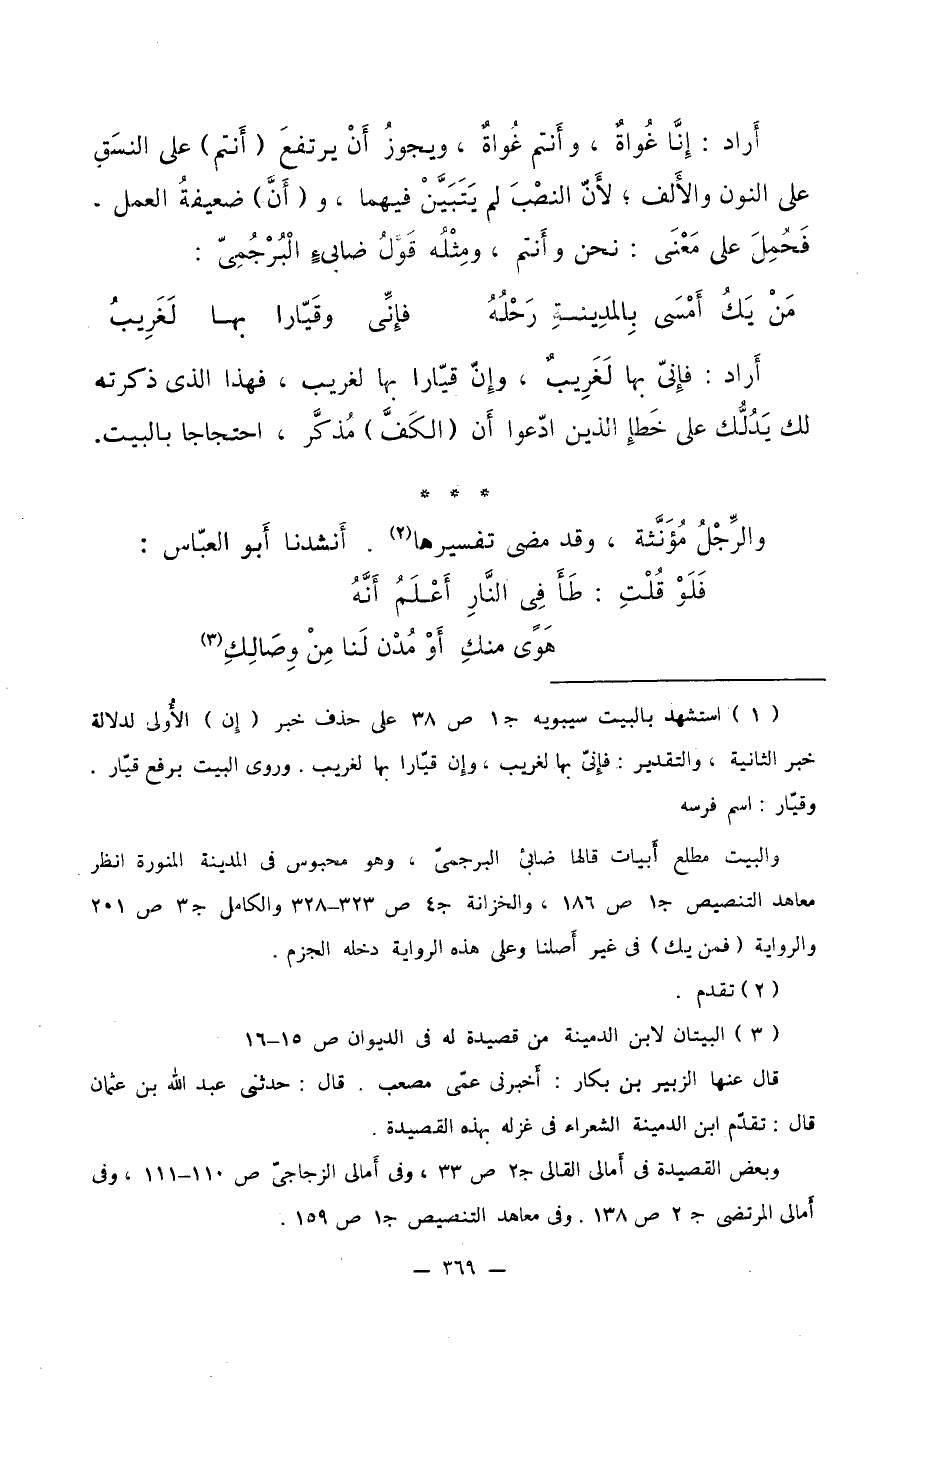 أَراد : إنَّا غُواةٌ ، وأَنتم غُواةٌ ، ويجوزُ أَنْ يرتفعَ (أَنتم) على النسَقِ
على النون والأَلف ؛ لأَنّ النصْبَ لم يَتَبَيَّنْ فيهما ، و (أَنَّ) ضعيفةُ العمل .
فَحُمِلَ على مَعْنَى : نحن وأَنتم ، ومِثْلُه قَوْلُ ضابىءٍ الْبُرْجُمِيّ :
مَنْ يَكُ أَمْسَى بِالمَدِينـةِ رَحْلُهُ فإنِّى وقَيّارا بهـا لَغَرِيبُ
أَراد : فإنىّ بها لَغَرِيبٌ ، وإنّ قيّارا بها لغريب ، فهذا الذى ذكرته
لك يَدُلُّك على خَطإِ الذين ادّعوا أَن (الكَفَّ) مُذكَّر ، احتجاجا بالبيت.
* * *
والرِّجْلُ مُؤَنَّثة ، وقد مضى تفسيرها(٢) . أَنشدنا أَبو العبّاس :
فَلَوْ قُلْتِ : طَأْ فِى النَّارِ أَعْـلَمُ أَنَّهُ
هَوًى منكِ أَوْ مُدْن لَنا مِنْ وِصَالِكِ(٣)
(١) استشهد بالبيت سيبويه جـ١ ص ٣٨ على حذف خبر (إن) الأُولى لدلالة
خبر الثانية ، والتقدير : فإنىّ بها لغريب ، وإن قيّارا بها لغريب . وروى البيت برفع قيّار .
وقيّار : اسم فرسه
والبيت مطلع أَبيات قالها ضابئ البرجمىّ ، وهو محبوس فى المدينة المنورة انظر
معاهد التنصيص جـ١ ص ١٨٦ ، والخزانة جـ٤ ص ٣٢٣–٣٢٨ والكامل جـ٣ ص ٢٠١
والرواية (فمن يك) فى غير أَصلنا وعلى هذه الرواية دخله الجزم .
(٢) تقدم .
(٣) البيتان لابن الدمينة من قصيدة له فى الديوان ص ١٥–١٦
قال عنها الزبير بن بكار : أَخبرنى عمّى مصعب . قال : حدثنى عبد الله بن عثمان
قال : تقدّم ابن الدمينة الشعراء فى غزله بهذه القصيدة .
وبعض القصيدة فى أَمالى القالى جـ٢ ص ٣٣ ، وفى أَمالى الزجاجىّ ص ١١٠–١١١ ، وفى
أَمالى المرتضى جـ ٢ ص ١٣٨ . وفى معاهد التنصيص جـ١ ص ١٥٩ .
– ٣٦٩ –